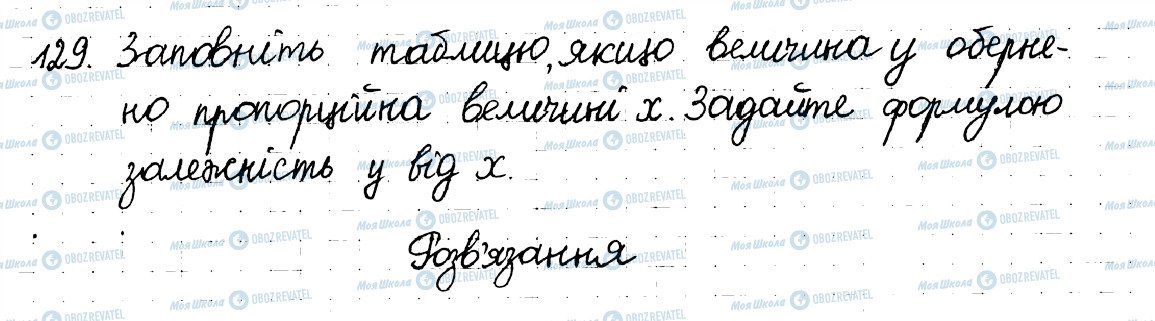 129. Заповніть таблицю, якщо величина у оберне-
но пропорційна величині х. Задайте формулою
залежність у від х.
Розв'язання